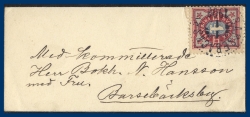 Med kommitterade
Herr Bokh. N. Hansson
med Fru.
Barsebäcksby.